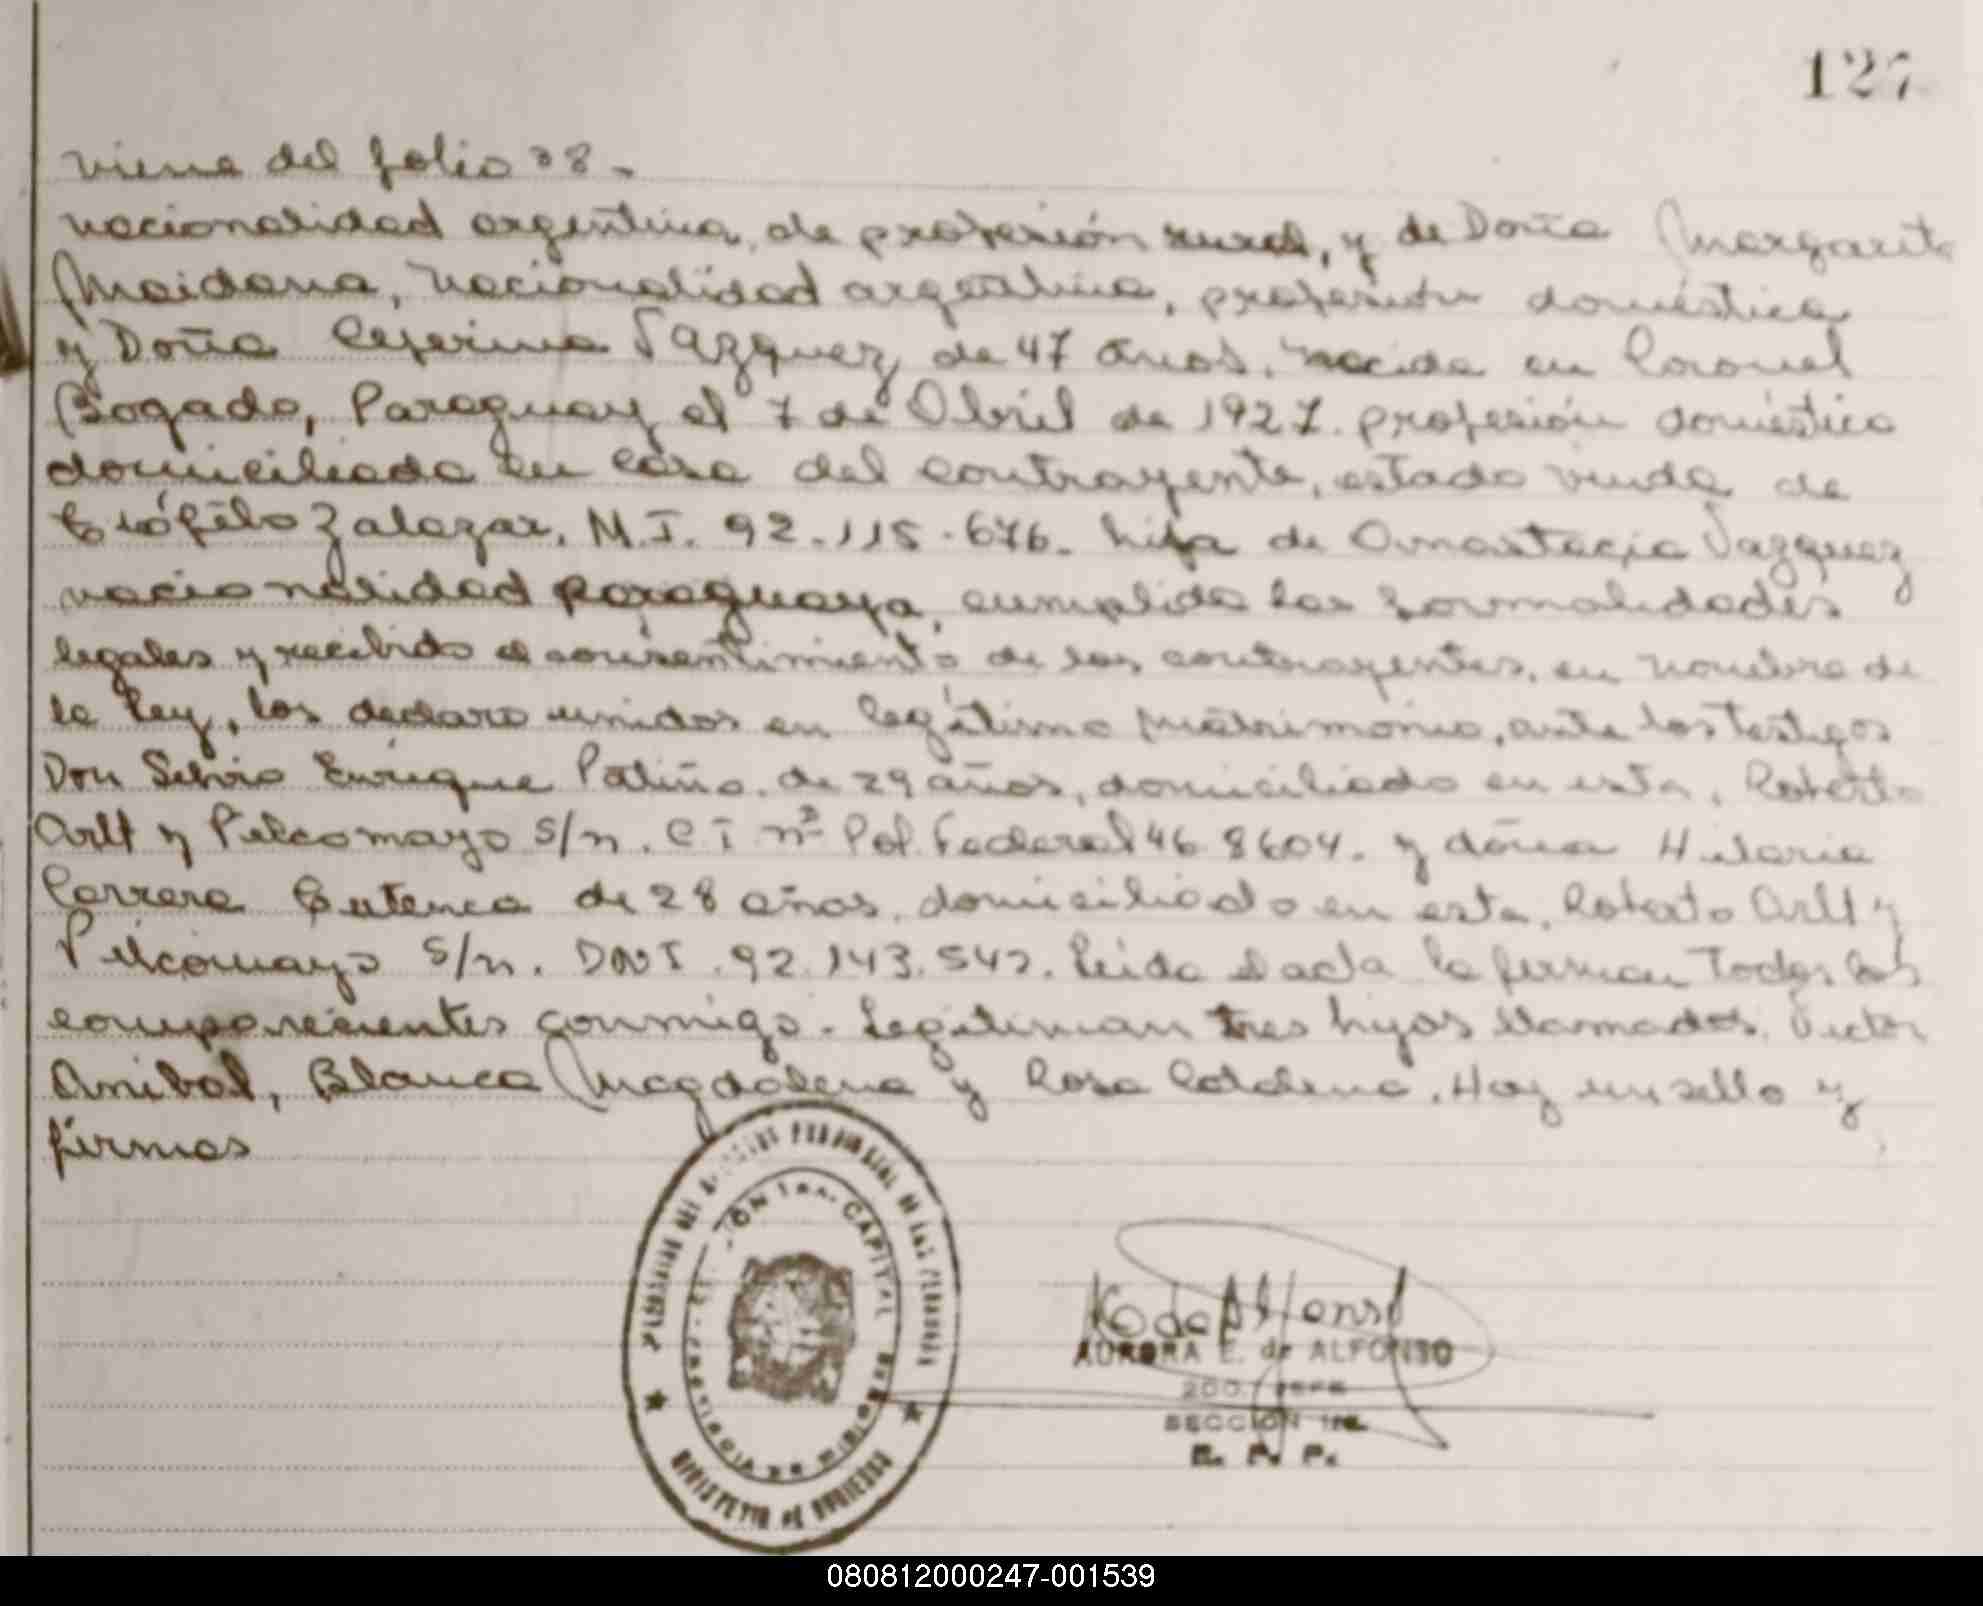 127
viene del folio 38 -
nacionalidad argentina, de profesión rural, y de Doña Margarita
Maidana, nacionalidad argentina, profesión doméstica
y Doña Ceferina Vazquez de 47 años. nacida en Coronel
Bogado, Paraguay el 7 de Abril de 1927. profesión doméstica
domiciliada en casa del contrayente, estado viuda de
Zalazar, M.I. 92.115.676. hija de Anastacia Vazquez
nacionalidad paraguaya, cumplida las formalidades
legales y recibido el consentimiento de los contrayentes, en nombre de
la Ley, los declaro unidos en legítimo matrimonio, ante los testigos
Don Silvio Enrique Patiño. de 29 años, domiciliado en esta, Roberto
Arlt y Pilcomayo s/n. C I nº Pol. Federal 46 8604. y doña Hilaria
Carrera de 28 años. domiciliado en esta, Roberto Arlt y
Pilcomayo s/n. DNI. 92.143.542. Leida el acta la firman Todos los
comparecientes conmigo. Legitiman tres hijos llamados, Victor
Anibal, Blanca Magdalena y Rosa . Hay un sello y
firmas
PROVINCIAL DE LAS PERSONAS
CAPITAL
MINISTERIO DE GOBIERNO
AURORA E. de ALFONSO
2DO. JEFE
SECCION
R. P. P.
080812000247-001539